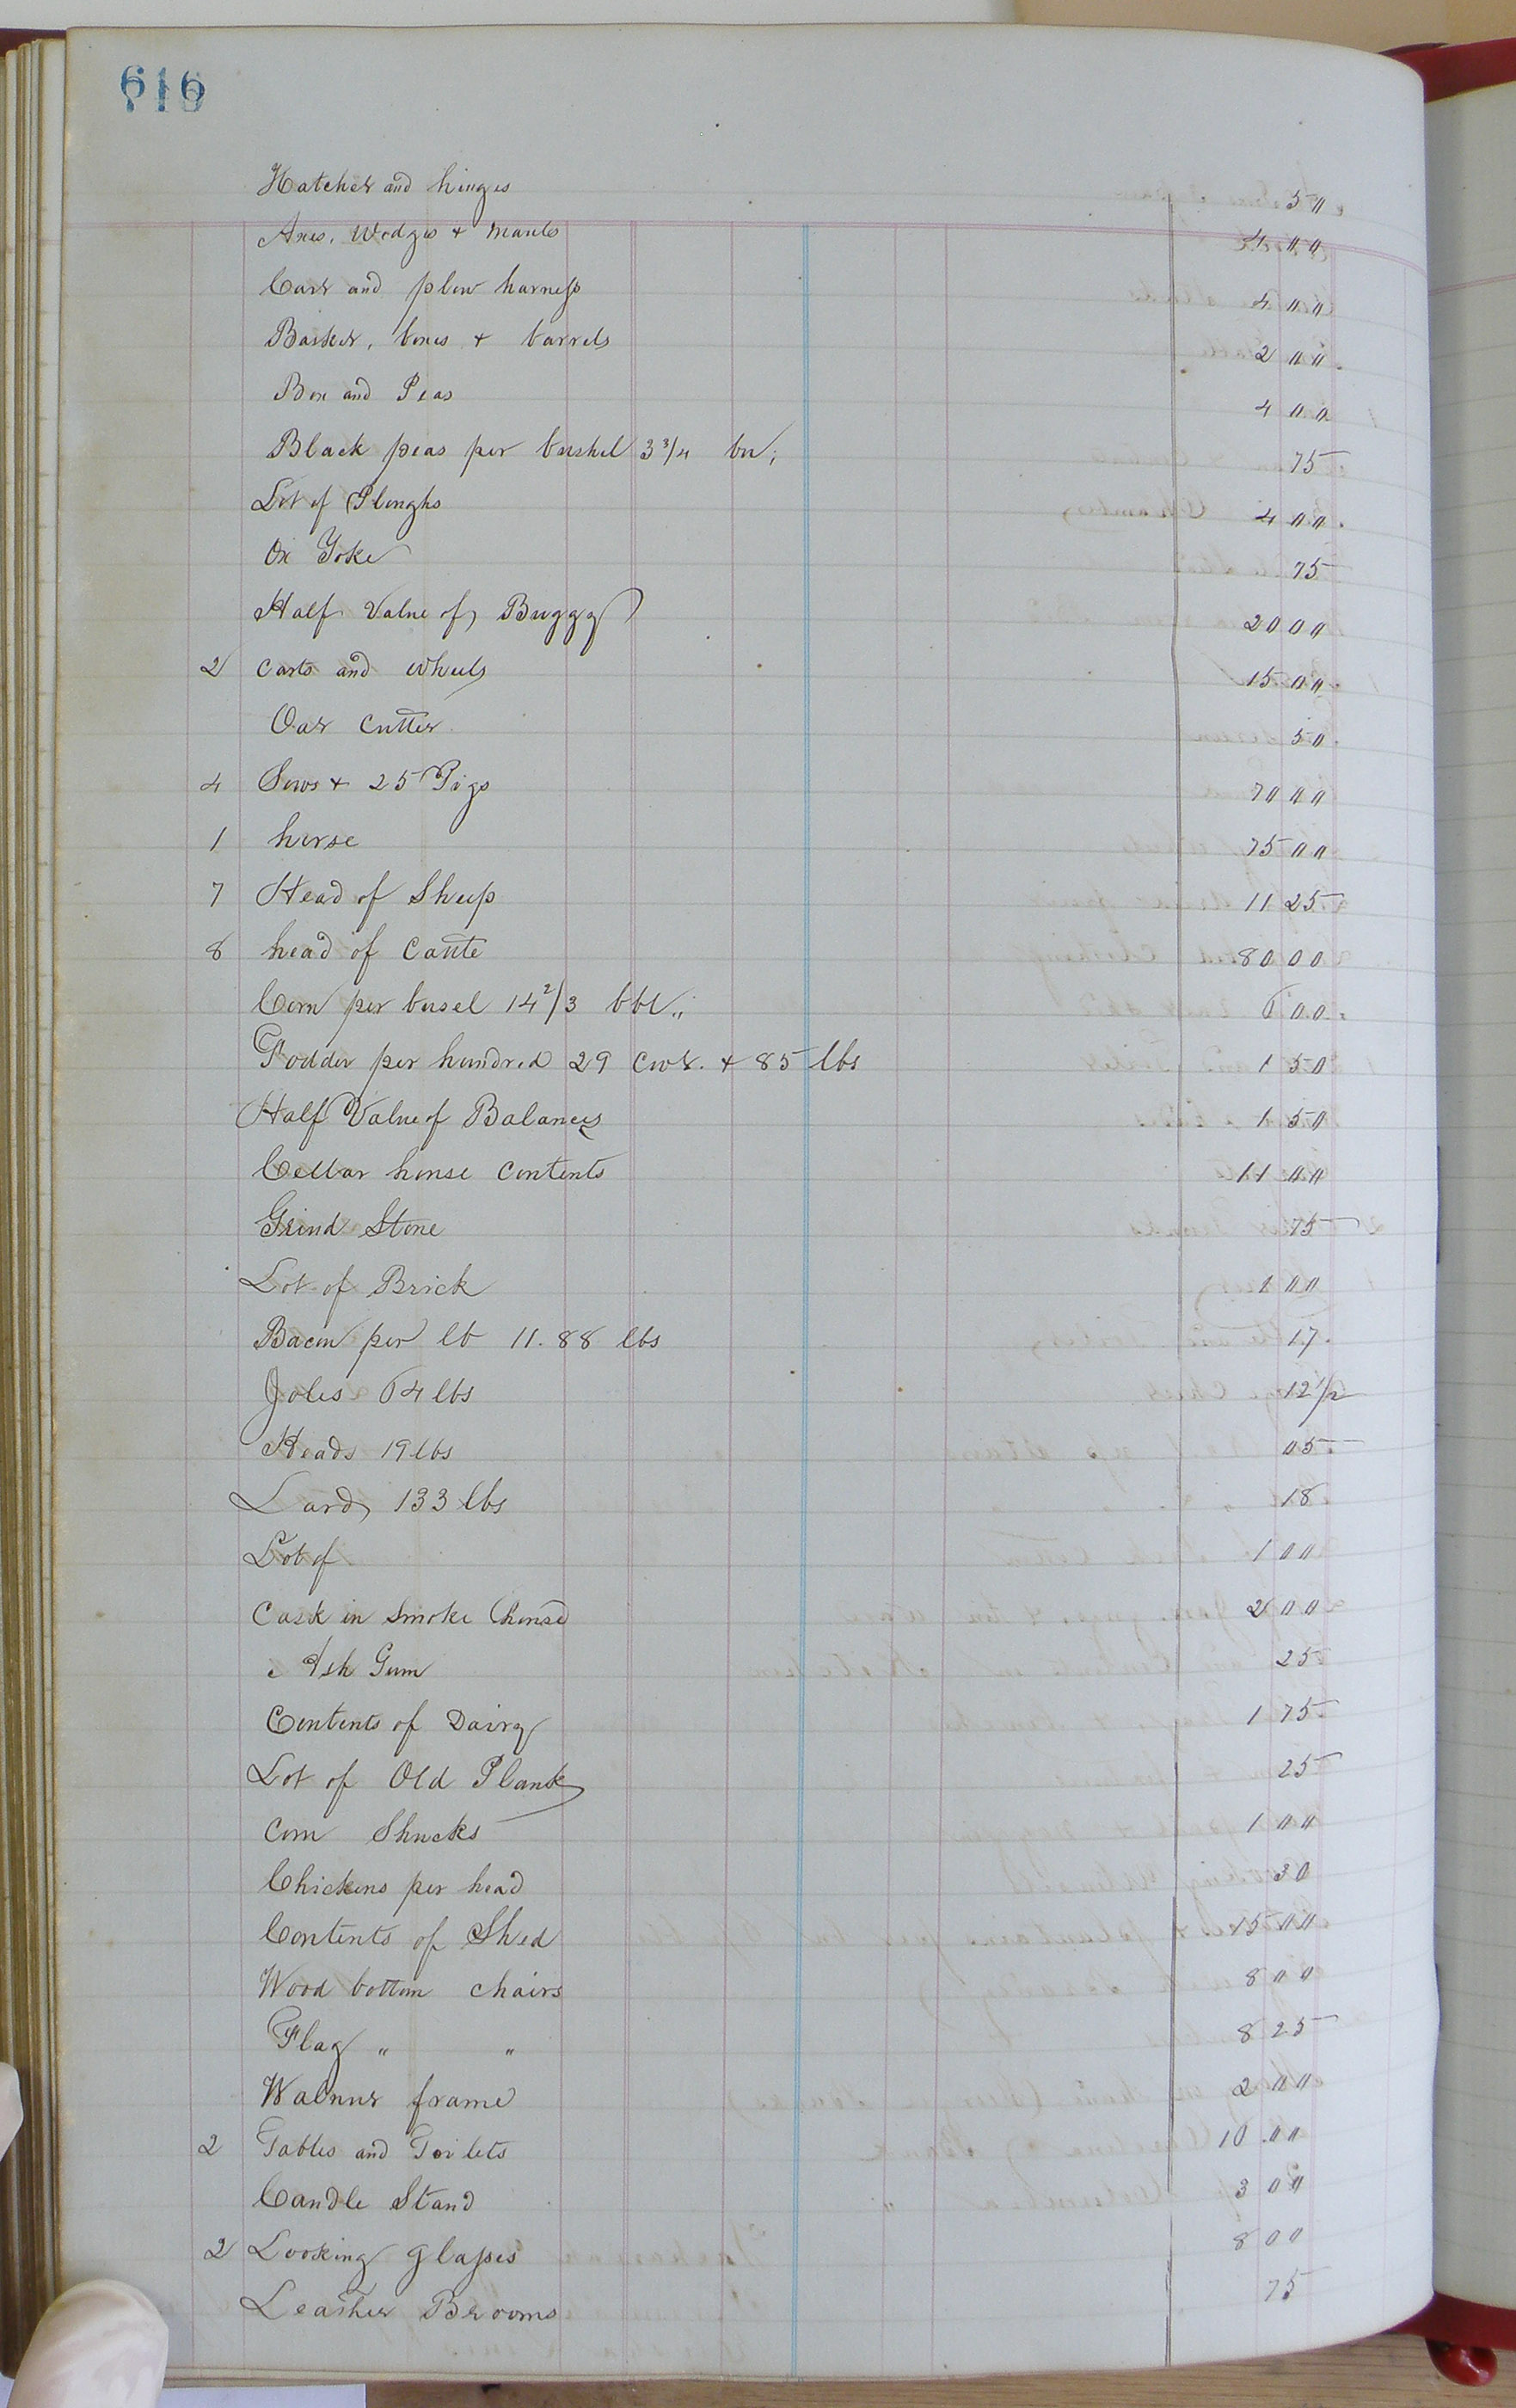 616
Hatchet and hinges 50
Axes, Wedges + Mauls 4 00
Cart and plow harness 4 00
Basket, boxes + barrels 2 00
Box and Peas 4 00
Black peas per bushel 3 3/4 bu, 75
Lot of Ploughs 4 00
Ox Yoke 75
Half Value of Buggy 20 00
2 Carts and wheels 15 00
Oat Cutter 50
4 Sows + 25 Pigs 70 00
1 horse 75 00
7 Head of Sheep 11 25
8 head of Cattle 80 00
Corn per busel 14 2/3 bbl,, 6 00
Fodder per hundred 29 Cwt. + 85 lbs 1 50
Half Value of Balances 1 50
Cellar house contents 11 00
Grind Stone 75
Lot of Brick 1 00
Bacon per lb 11.88 lbs 17
Joles 64 lbs 12 1/2
Heads 19 lbs 05
Lard, 133 lbs 18
Lot of 1 00
Cask in Smoke house 2 00
Ash Gum 25
Contents of Dairy 1 75
Lot of Old Plank 25
Corn Shucks 1 00
Chickens per head 30
Contents of Shed 15 00
Wood bottom chairs 8 00
Flag " " 8 25
Walnut frame 2 00
2 Tables and Toilets 10 00
Candle Stand 3 00
2 Looking glasses 8 00
Leather Brooms 75